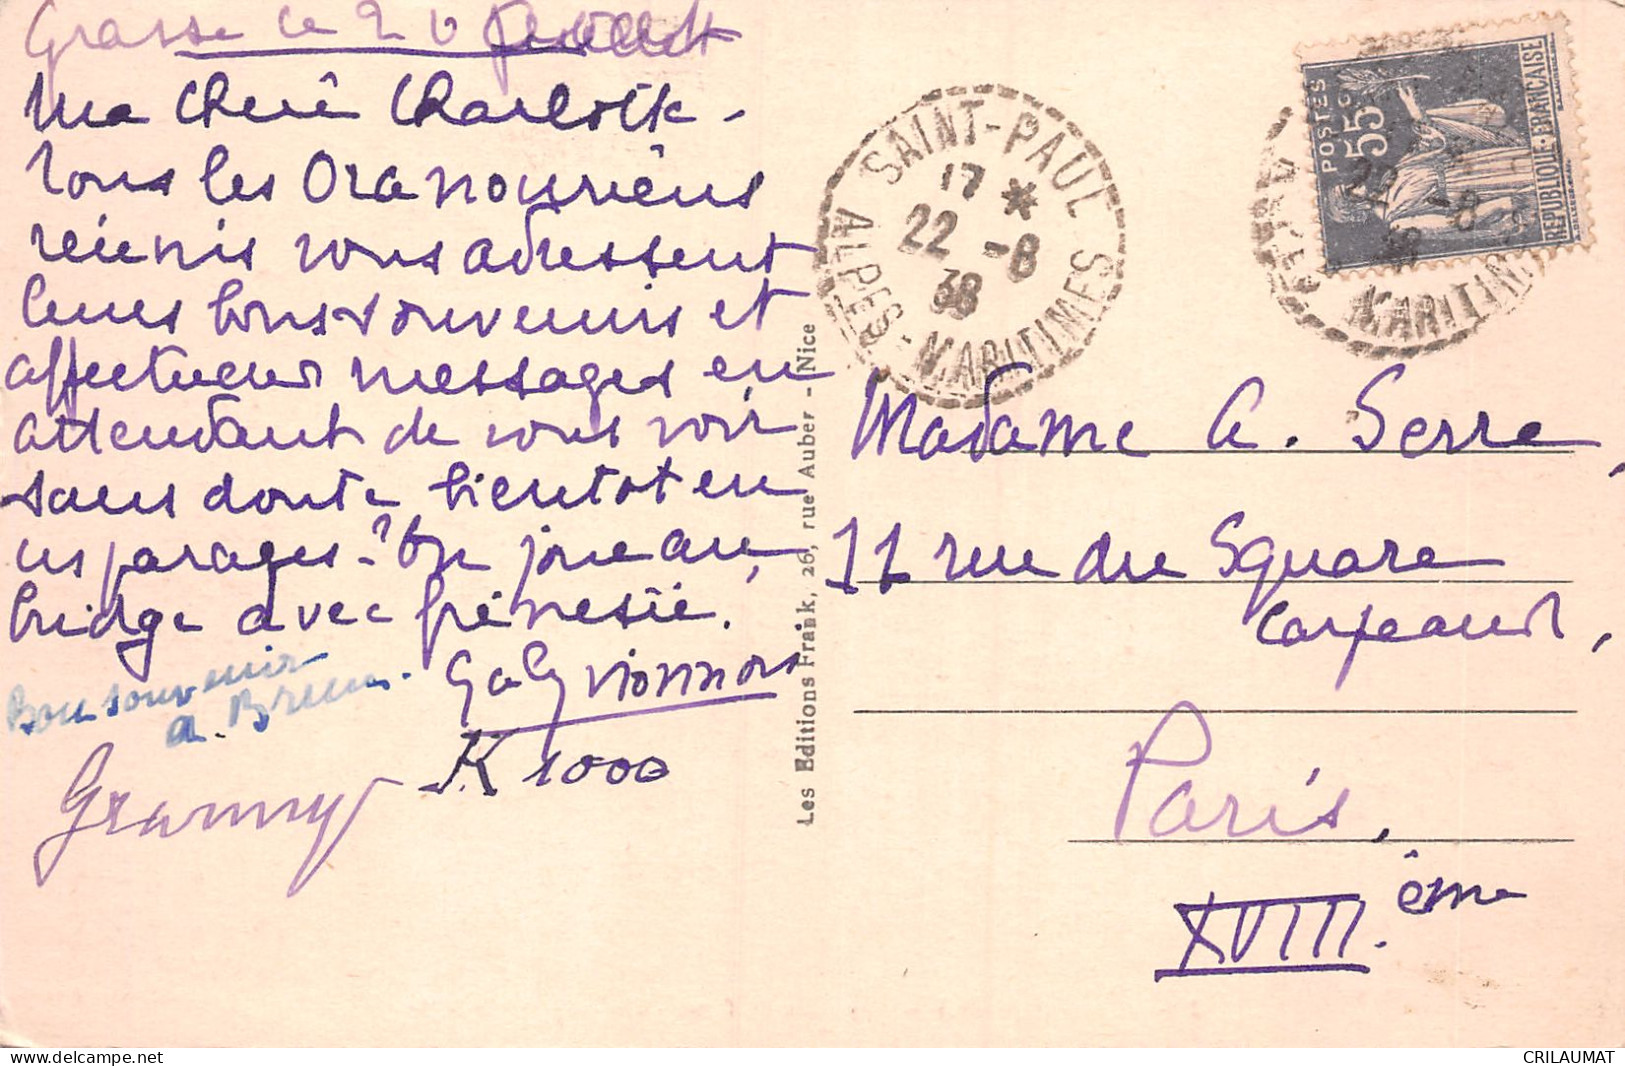 Grasse le 20
Ma Chère Charlotte -
Tous les Oranouriens
réunis vous adressent
leurs bons souvenirs et
affectueux messages en
attendant de vous voir
sans doute bientot en
ces parages - ? On joue au
bridge avec frénésie.
Bon souvenir
a. Brun.
Granny
K 1000
Les Editions Frank, 26, rue Auber - Nice
SAINT-PAUL
17 *
22 -8
38
ALPES-MARITIMES
POSTES
55c
REPUBLIQUE-FRANÇAISE
MARITIMES
Madame A. Serre,
11 rue du Square
Carpeaux,
Paris.
XVIII.ème
CRILAUMAT
www.delcampe.net